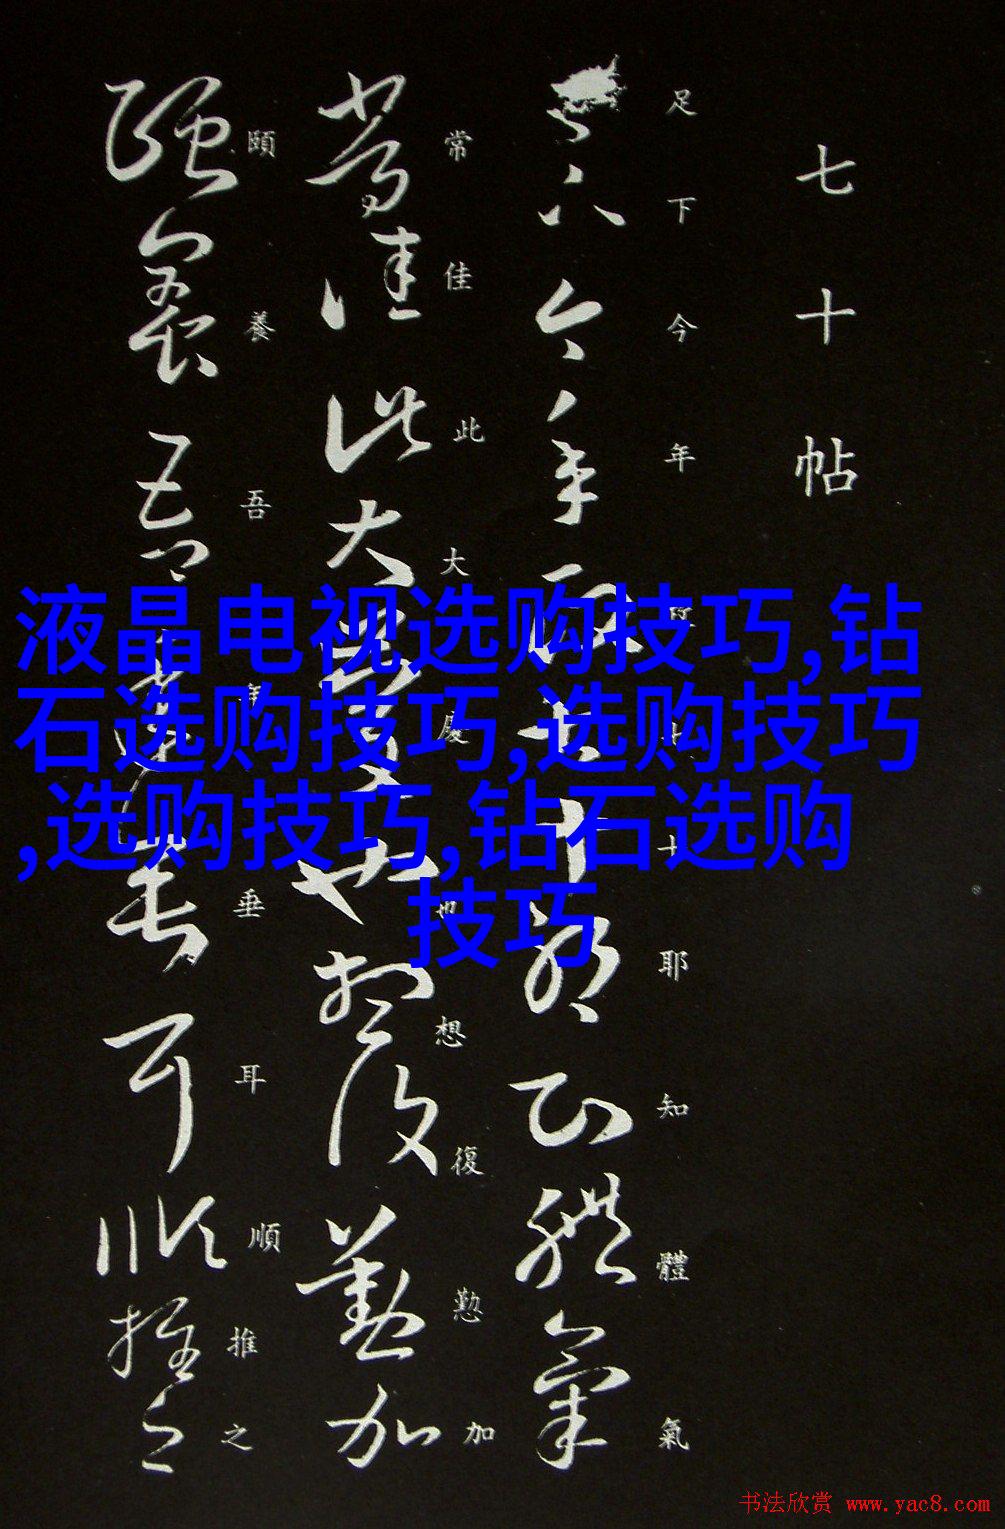 七十帖
足下今年政七十耶知體氣
常佳此大慶也想復懃加
頤養吾年垂耳順推之
液晶电视选购技巧,钻
石选购技巧,选购技巧
,选购技巧,钻石选购
技巧
书法欣赏 www.yac8.com